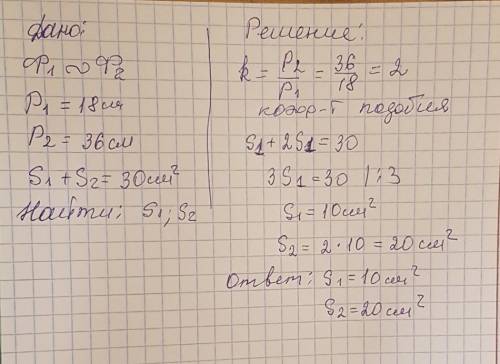 Дано:
Ф₁ ∾ Ф₂
P₁ = 18см
P₂ = 36см
S₁ + S₂ = 30см²
Найти: S₁; S₂
Решение:
k = P₂/P₁ = 36/18 = 2
коэф-т подобия
S₁ + 2S₁ = 30
3S₁ = 30 /:3
S₁ = 10см²
S₂ = 2 · 10 = 20см²
Ответ: S₁ = 10см²
S₂ = 20см²